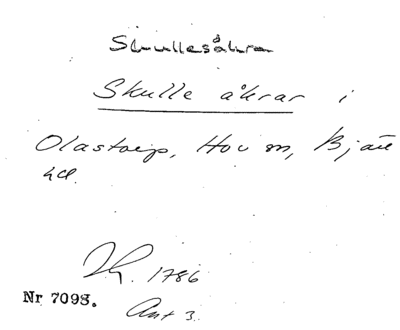 Skullesåkra
Skulle åkrar i
Olastorp, Hov sn, Bjäre
hd.
1786
Nr 7098.
Akt 3.